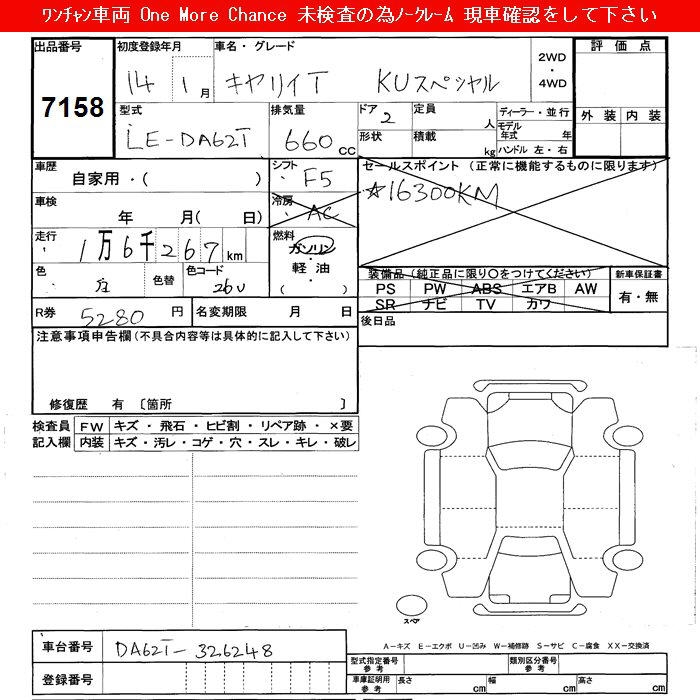 ﾜﾝﾁｬﾝ車両 One More Chance 未検査の為ﾉｰｸﾚｰﾑ 現車確認をして下さい
出品番号 初度登録年月 車名・グレード 2WD・4WD 評価点
7158 14 1月 キャリイT KUスペシャル
型式 排気量 ドア 定員 人 ディーラー・並行 外装 内装
LE-DA62T 660cc 2 形状 積載 kg モデル年式 年 ハンドル 左・右
車歴 自家用・( ) シフト・F5 セールスポイント (正常に機能するものに限ります)
☆16300KM
車検 年 月( 日) 冷房・AC
走行 1万6千267km 燃料 ガソリン・軽油・( )
色 色替 色コード 26U 装備品 (純正品に限り○をつけてください) 新車保証書
PS PW ABS エアB AW 有・無
SR ナビ TV カワ
R券 5280円 名変期限 月 日 後日品
注意事項申告欄 (不具合内容等は具体的に記入して下さい)
修復歴 有 〔箇所 〕
検査員 FW キズ・飛石・ヒビ割・リペア跡・×要
記入欄 内装 キズ・汚レ・コゲ・穴・スレ・キレ・破レ
スペア
車台番号 DA62T-326248 A－キズ E－エクボ U－凹み W－補修跡 S－サビ C－腐食 XX－交換済
型式指定番号 参考 類別区分番号 参考
登録番号 車庫証明用 参考 長さ cm 幅 cm 高さ cm